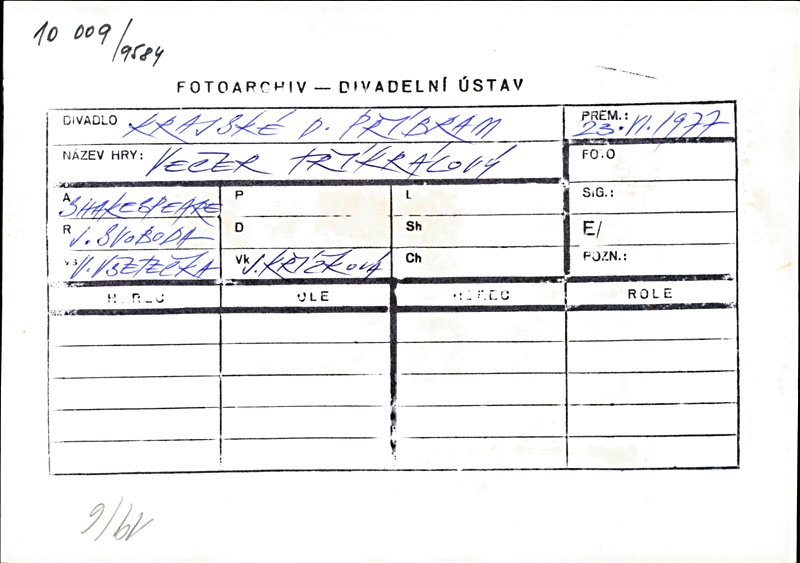 10 009/9584
FOTOARCHIV — DIVADELNÍ ÚSTAV
DIVADLO KRAJSKÉ D. PŘÍBRAM
PREM.: 23.VI.1977
NÁZEV HRY: VEČER TŘÍKRÁLOVÝ
FOTO
A SHAKESPEARE
P
L
SIG.:
R J. SVOBODA
D
Sh
E/
Vs V. VŠETEČKA
Vk J. KŘÍŽKOVÁ
Ch
POZN.:
HEREC ROLE HEREC ROLE